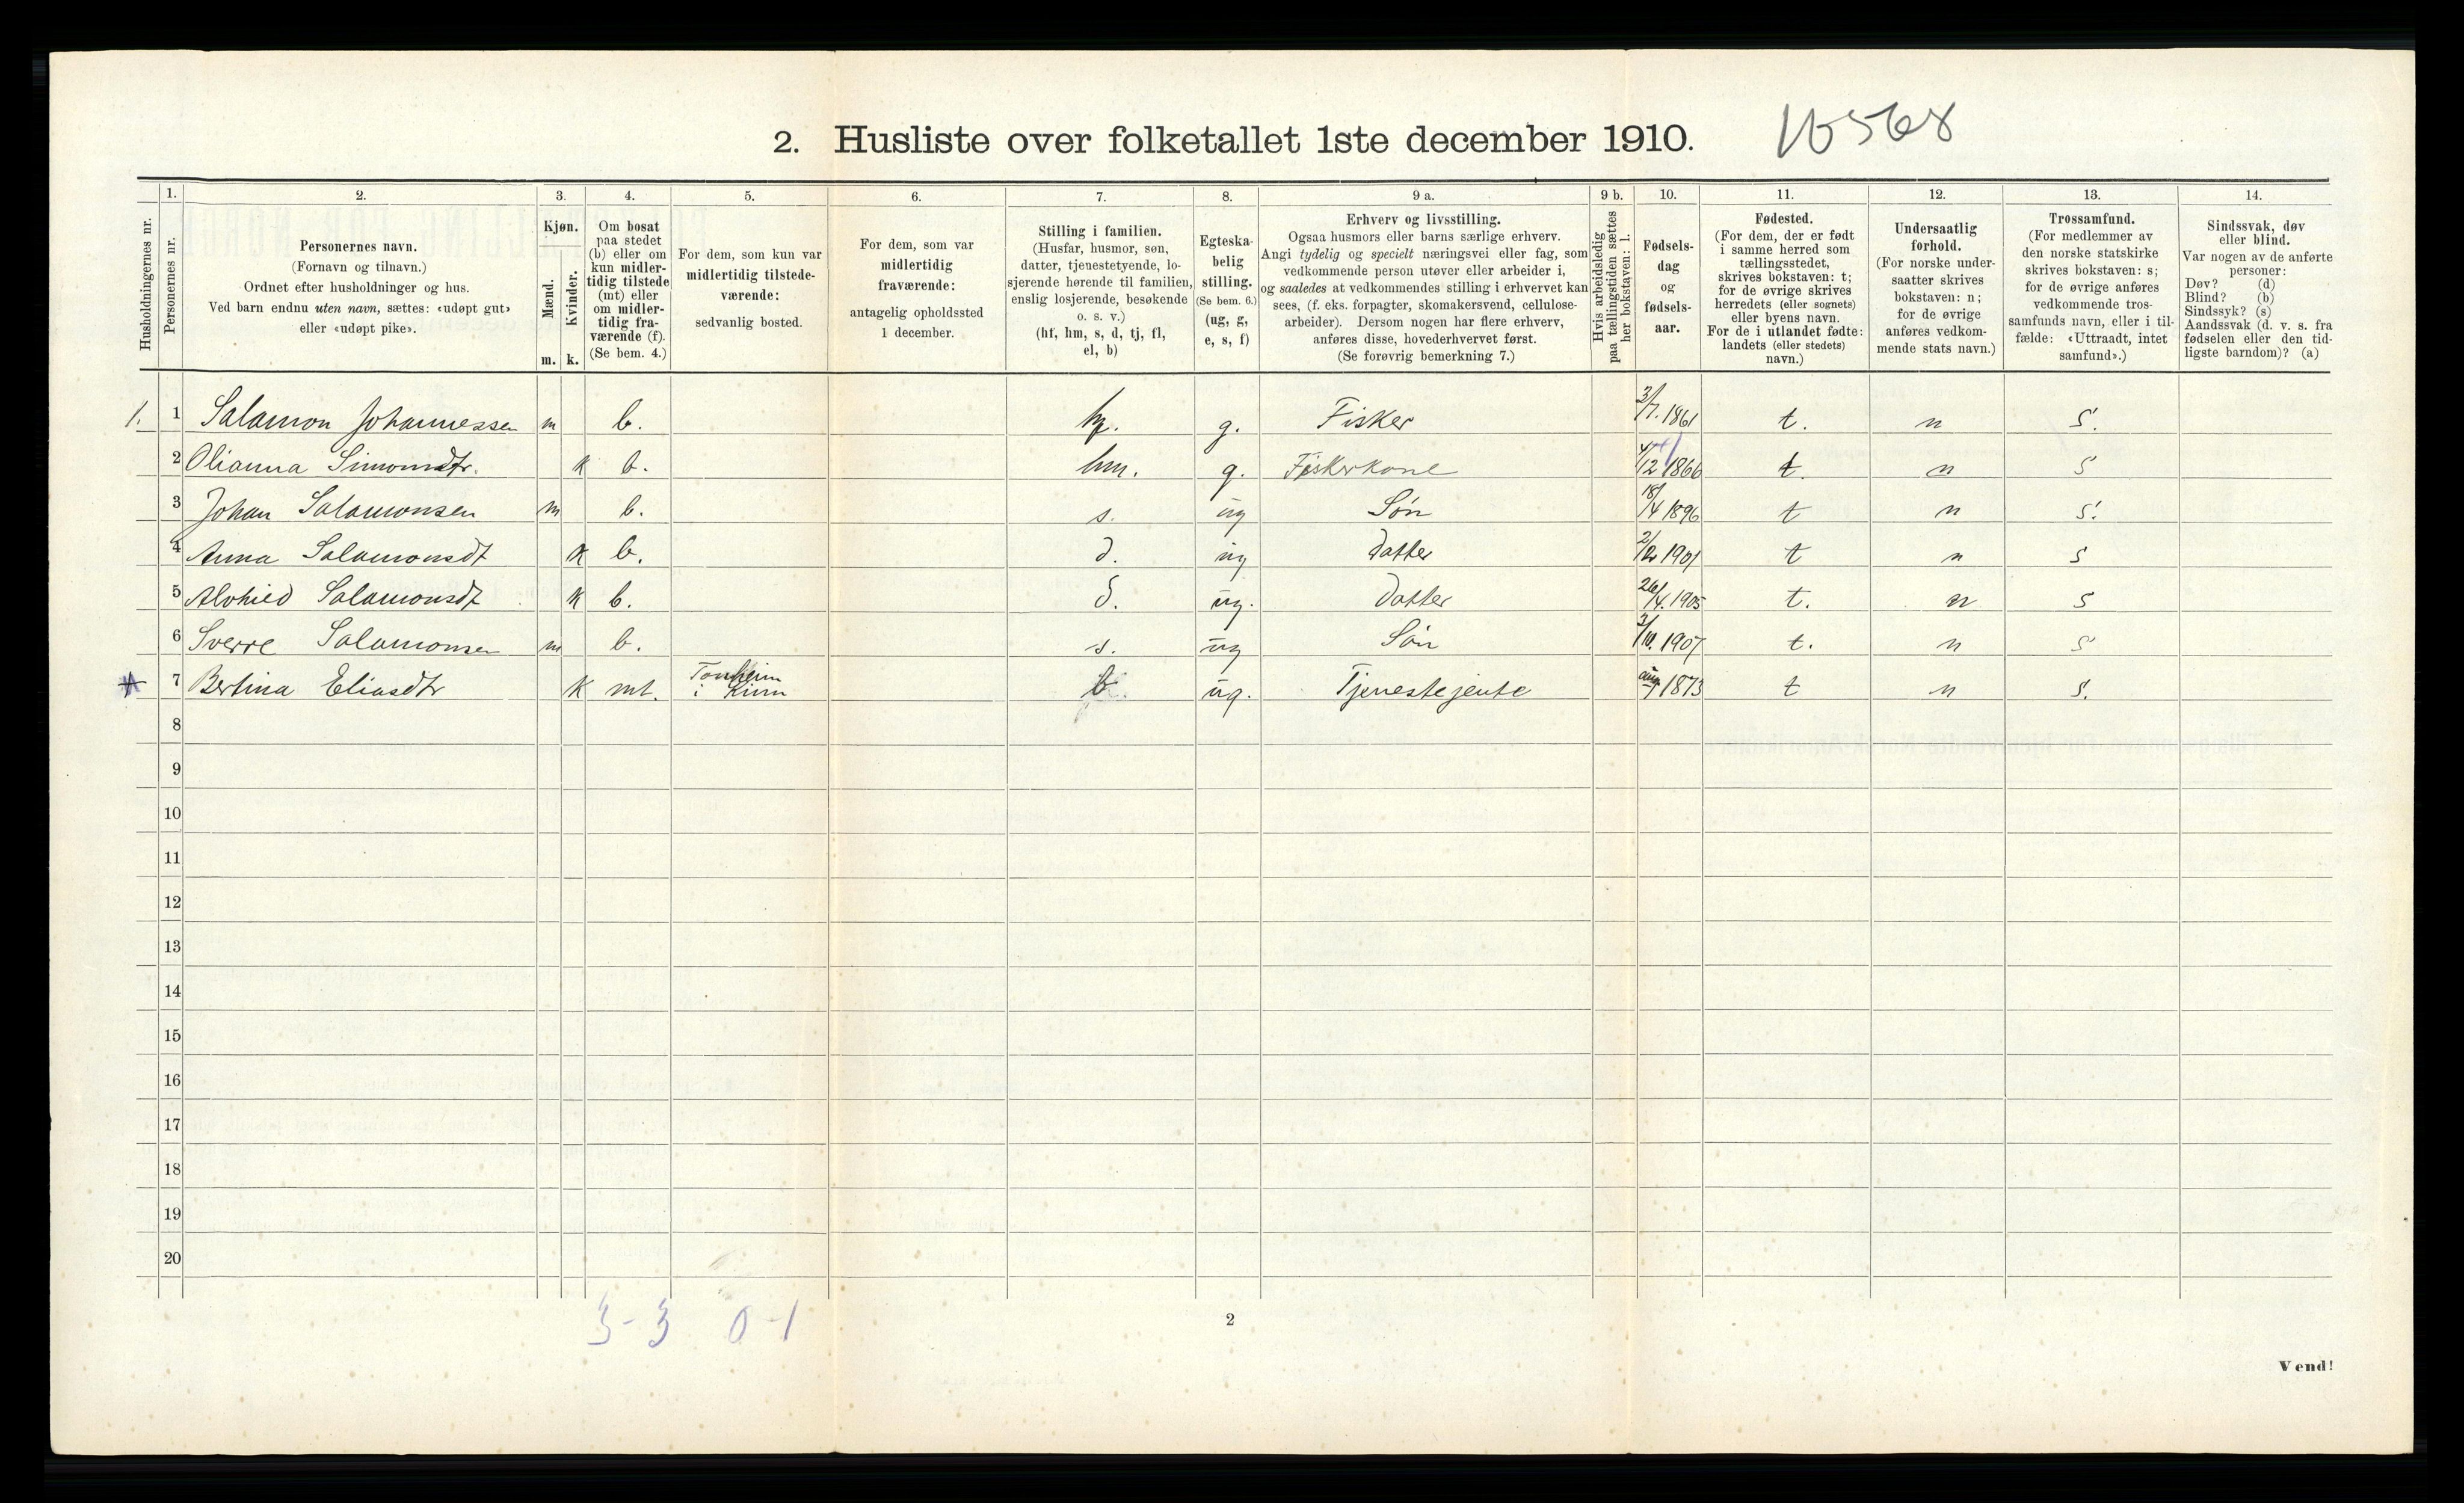 2. Husliste over folketallet 1ste december 1910. 10568
1. 2. 3. 4. 5. 6. 7. 8. 9 a. 9 b. 10. 11. 12. 13. 14.
Husholdningernes nr.
Personernes nr.
Personernes navn.
(Fornavn og tilnavn.)
Ordnet efter husholdninger og hus.
Ved barn endnu uten navn, sættes: «udøpt gut»
eller «udøpt pike».
Kjøn.
Mænd.
Kvinder.
m. k.
Om bosat
paa stedet
(b) eller om
kun midler-
tidig tilstede
(mt) eller
om midler-
tidig fra-
værende (f).
(Se bem. 4.)
For dem, som kun var
midlertidig tilstede-
værende:
sedvanlig bosted.
For dem, som var
midlertidig
fraværende:
antagelig opholdssted
1 december.
Stilling i familien.
(Husfar, husmor, søn,
datter, tjenestetyende, lo-
sjerende hørende til familien,
enslig losjerende, besøkende
o. s. v.)
(hf, hm, s, d, tj, fl,
el, b)
Egteska-
belig
stilling.
(Se bem. 6.)
(ug, g,
e, s, f)
Erhverv og livsstilling.
Ogsaa husmors eller barns særlige erhverv.
Angi tydelig og specielt næringsvei eller fag, som
vedkommende person utøver eller arbeider i,
og saaledes at vedkommendes stilling i erhvervet kan
sees, (f. eks. forpagter, skomakersvend, cellulose-
arbeider). Dersom nogen har flere erhverv,
anføres disse, hovederhvervet først.
(Se forøvrig bemerkning 7.)
Hvis arbeidsledig
paa tællingstiden sættes
her bokstaven: l.
Fødsels-
dag
og
fødsels-
aar.
Fødested.
(For dem, der er født
i samme herred som
tællingsstedet,
skrives bokstaven: t;
for de øvrige skrives
herredets (eller sognets)
eller byens navn.
For de i utlandet fødte:
landets (eller stedets)
navn.)
Undersaatlig
forhold.
(For norske under-
saatter skrives
bokstaven: n;
for de øvrige
anføres vedkom-
mende stats navn.)
Trossamfund.
(For medlemmer av
den norske statskirke
skrives bokstaven: s;
for de øvrige anføres
vedkommende tros-
samfunds navn, eller i til-
fælde: «Uttraadt, intet
samfund».)
Sindssvak, døv
eller blind.
Var nogen av de anførte
personer:
Døv? (d)
Blind? (b)
Sindssyk? (s)
Aandssvak (d. v. s. fra
fødselen eller den tid-
ligste barndom)? (a)
1. 1 Salamon Johannessen m b. hf. g. Fisker 3/7. 1861 t. n s.
2 Olianna Simonsdtr. k b. hm. g. Fiskerkone 4/12 1866 t. n s
3 Johan Salamonsen m b. s. ug Søn 18/4 1896 t n s.
4 Anna Salamonsdt k b. d. ug Datter 2/2 1901 t n s
5 Alvhied Salamonsdt k b. d. ug. Datter 26/4. 1905 t. n s
6 Sverre Salamonsen m b. s. ug Søn 3/10. 1907 t. n s
7 Bertina Eliasdtr k mt. Tonheim i Kinn b. ug. Tjenestejente 1873 t n s.
8
9
10
11
12
13
14
15
16
17
18
19
20
3-3 0-1
2
Vend!